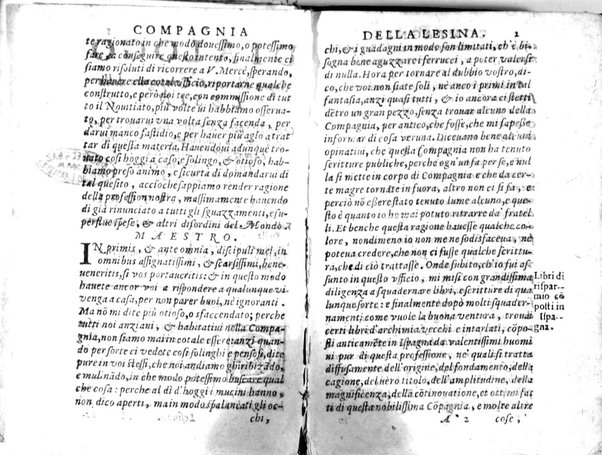 COMPAGNIA
te ragionato in che modo douessimo, o potessimo
fare, a conseguire questo intento, finalmente ci
siamo risoluti di ricorrere a V. Mercè, sperando,
per cotal officio, riportarne qualche
construtto, e però noi tre, con commissione di tut
to il Nouitiato, più volte vi habbiamo osserua-
to, per trouarui vna volta senza facenda, per
darui manco fastidio, e per hauer più agio a trat
tar di questa materia. Hauendoui adunque tro
uato cosi hoggi a caso, e solingo, & otioso, hab-
biamo preso animo, e sicurtà di domandarui di
tal quesito, accioche sappiamo render ragione
della profession nostra, massimamente hauendo
di già rinunciato a tutti gli sguazzamenti, e su-
perflue spese, & altri disordini del Mondo.
MAESTRO.
IN primis, & ante omnia, discipuli mei, in
omnibus assignatissimi, & scarsissimi, bene-
ueneritis, si vos portaueritis: & in questo modo
hauete ancor voi a rispondere a qualunque vi
venga a casa, per non parer buoi, nè ignoranti.
Ma nò mi dite più otioso, o sfaccendato; perche
tutti noi anziani, & habitatiui nella Compa-
gnia, non siamo mai in cotale essere: anzi quan
do per sorte ci vedete cosi solinghi e pensosi, dite
pure in voi stessi, che noi andiamo ghiribizādo,
e mulināndo, in che modo potessimo buscare qual
che cosa: perche al dì d'hoggi i mucini hanno,
non dico aperti, ma in modo spalancati gli oc-
chi,
DELLA LESINA. 2
chi, & i guadagni in modo son limitati, ch'è bi-
sogna bene aguzzare i ferrucci, a poter valersi
di nulla. Hora per tornare al dubbio vostro, di-
co, che voi non siate soli, nè anco i primi in tal
fantasia, anzi quasi tutti, & io ancora ci stetti
dētro un gran pezzo, senza trouare alcuno della
Compagnia, per antico, che fosse, che mi sapesse
informar di cosa veruna. Diceuano bene alcuni
opinatiui, che questa Compagnia non ha tenuto
scritture publiche, perche ogn'un fa per se, e nul
la si mette in corpo di Compagnia e che da cer-
te magre tornate in fuora, altro non ci si fa, e
però nō esserestato tenuto lume alcuno, e que-
sto è quanto io ho mai potuto ritrarre da' fratel
li. Et benche questa ragione hauesse qualche co-
lore, nondimeno io non me ne sodisfaceua, nè
poteua credere, che non ci fusse qualche scrittu-
ra, che di ciò trattasse. Onde subito, ch'io fui as-
sunto in questo vfficio, mi misi con grandissima
diligenza a squadernare libri, e scritture di qua-
lunque sorte: e finalmente dopò molti squader-
namenti; come vuole la buona ventura, trouai
certi libri d'archimia vecchi e intarlati, cōpo-
sti anticamēte in ispagna da valentissimi huomi
ni pur di questa professione, ne' quali si tratta
diffusamente dell'origine, del fondamento, della
cagione, del uero titolo, dell'amplitudine, della
magnificenza, della cōtinouatione, et ottimi fat
ti di questa nobilissima Cōpagnia, e molte altre
A 2 cose;
Libri di
rispar-
mio cō
posti in
Ispa-
gna.